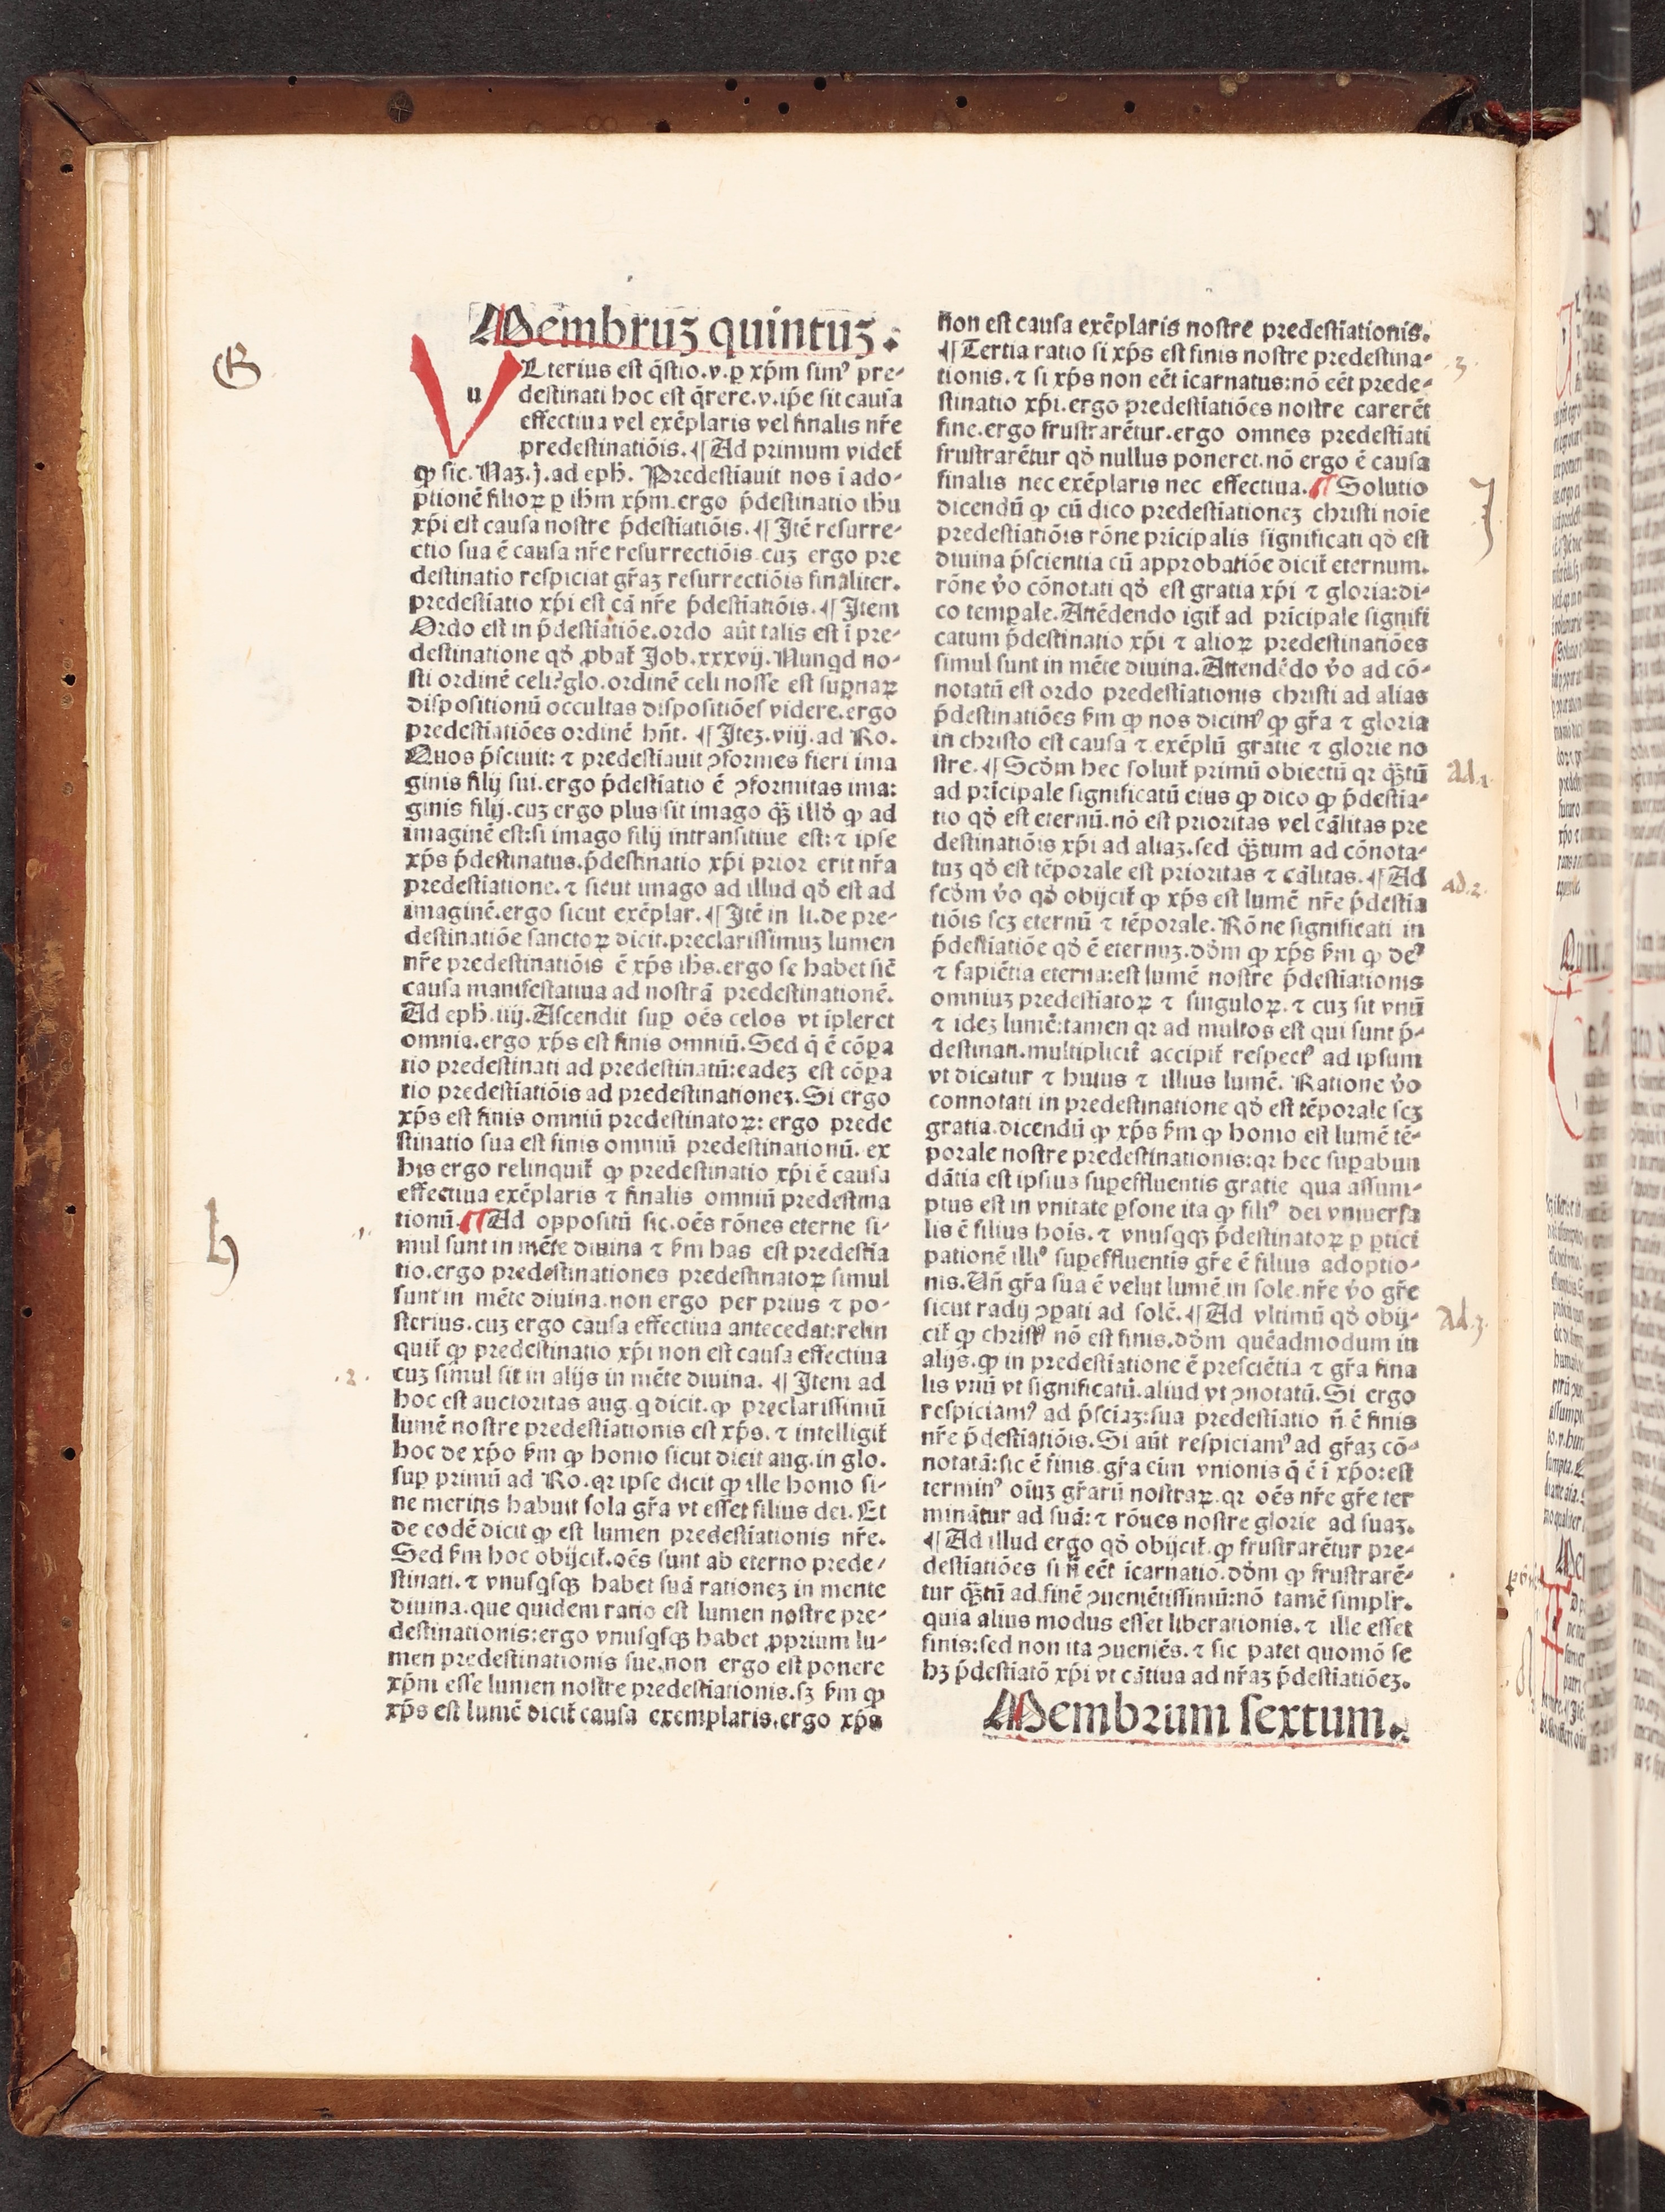 Membruꝫ quintuꝫ.
G
VLterius est q̄stio.v.ꝑ xp̄m sim⁹ pre-
u
destinati hoc est q̄rere.v.ip̄e sit causa
effectiua vel exēplaris vel finalis nr̄e
predestinatiōis.¶Ad primum videt̄
ꝙ sic. Naꝫ.j.ad eph. Predestiauit nos i ado-
ptionē filioꝝ ꝑ ihm xp̄m.ergo p̄destinatio ihu
xp̄i est causa nostre p̄destiatiōis.¶Itē resurre-
ctio sua ē causa nr̄e resurrectiōis.cuꝫ ergo pre
destinatio respiciat gr̄aꝫ resurrectiōis finaliter.
predestiatio xp̄i est cā nr̄e p̄destiatiōis.¶Item
Ordo est in p̄destiatiōe.ordo aūt talis est i pre-
destinatione qđ ꝓbat̄ Job.xxxvij.Nunqd no-
sti ordinē celi?glo.ordinē celi nosse est suꝑnaꝝ
dispositionū occultas dispositiōes videre.ergo
predestiatiōes ordinē hn̄t.¶Iteꝫ.viij.ad Ro.
Quos p̄sciuit: ⁊ predestiauit ꝯformes fieri ima
ginis filij sui.ergo p̄destiatio ē ꝯformitas ima:
ginis filij.cuꝫ ergo plus sit imago qꝫ̄ illđ ꝙ ad
imaginē est:si imago filij intransitiue est:⁊ ipse
xp̄s p̄destinatus.p̄destinatio xp̄i prior erit nr̄a
predestiatione.⁊ sicut imago ad illud qđ est ad
imaginē.ergo sicut exēplar.¶Itē in li.de pre-
destinatiōe sanctoꝝ dicit.preclarissimuꝫ lumen
nr̄e predestinatiōis ē xp̄s ihs.ergo se habet sic̄
causa manifestatiua ad nostrā predestinationē.
Ad eph.iiij.Ascendit suꝑ oēs celos vt ipleret
omnia.ergo xp̄s est finis omniū.Sed q̄ ē cōꝑa
tio predestinati ad predestinatū:eadeꝫ est cōꝑa
tio predestiatiōis ad predestinationeꝫ.Si ergo
xp̄s est finis omniū predestinatoꝝ: ergo prede
stinatio sua est finis omniū predestinationū. ex
his ergo relinquit̄ ꝙ predestinatio xp̄i ē causa
effectiua exēplaris ⁊ finalis omniū predestina
h
.1.
tionū.¶Ad oppositū sic.oēs rōnes eterne si-
mul sunt in mēte diuina ⁊ ẜm has est predestia
tio.ergo predestinationes predestinatoꝝ simul
sunt in mēte diuina.non ergo per prius ⁊ po-
sterius.cuꝫ ergo causa effectiua antecedat:relin
quit̄ ꝙ predestinatio xp̄i non est causa effectiua
.2.
cuꝫ simul sit in alijs in mēte diuina. ¶Item ad
hoc est auctoritas aug.q dicit.ꝙ preclarissimū
lumē nostre predestiationis est xp̄s.⁊ intelligit̄
hoc de xp̄o ẜm ꝙ homo sicut dicit aug.in glo.
suꝑ primū ad Ro.qꝛ ipse dicit ꝙ ille homo si-
ne meritis habuit sola gr̄a vt esset filius dei. Et
de eodē dicit ꝙ est lumen predestiationis nr̄e.
Sed ẜm hoc obijcit̄.oēs sunt ab eterno prede-
stinati.⁊ vnusqsqꝫ habet suā rationeꝫ in mente
diuina.que quidem ratio est lumen nostre pre-
destinationis:ergo vnusqsqꝫ habet ꝓprium lu-
men predestinationis sue.non ergo est ponere
xp̄m esse lumen nostre predestiationis.sꝫ ẜm ꝙ
xp̄s est lumē dicit̄ causa exemplaris.ergo xp̄s
non est causa exēplaris nostre predestiationis.
¶Tertia ratio si xp̄s est finis nostre predestina-
.3.
tionis.⁊ si xp̄s non eēt icarnatus:nō eēt prede-
stinatio xp̄i.ergo predestiatiōes nostre carerēt
fine.ergo frustrarētur.ergo omnes predestiati
frustrarētur qđ nullus poneret.nō ergo ē causa
finalis nec exēplaris nec effectiua.¶Solutio
J
dicendū ꝙ cū dico predestiationeꝫ christi noie
predestiatiōis rōne pricipalis significati qđ est
diuina p̄scientia cū approbatiōe dicit̄ eternum.
rōne v̄o cōnotati qđ est gratia xp̄i ⁊ gloria:di-
co tempale.Attēdendo igit̄ ad pricipale signifi
catum p̄destinatio xp̄i ⁊ alioꝝ predestinatiōes
simul sunt in mēte diuina.Attendēdo v̄o ad cō-
notatū est ordo predestiationis christi ad alias
p̄destinatiōes ẜm ꝙ nos dicim⁹ ꝙ gr̄a ⁊ gloria
in christo est causa ⁊ exēplū gratie ⁊ glorie no
stre.¶Scđm hec soluit̄ primū obiectū qꝛ qꝫ̄tū
ad.1.
ad pricipale significatū eius ꝙ dico ꝙ p̄destia-
tio qđ est eternū.nō est prioritas vel cālitas pre
destinatiōis xp̄i ad aliaꝫ.sed qꝫ̄tum ad cōnota-
tuꝫ qđ est tēporale est prioritas ⁊ cālitas.¶Ad
ad.2.
scđm v̄o qđ obijcit̄ ꝙ xp̄s est lumē nr̄e p̄destia
tiōis scꝫ eternū ⁊ tēporale.Rōne significati in
p̄destiatiōe qđ ē eternuꝫ.dđm ꝙ xp̄s ẜm ꝙ de⁹
⁊ sapiētia eterna:est lumē nostre p̄destiationis
omniuꝫ predestiatoꝝ ⁊ singuloꝝ.⁊ cuꝫ sit vnū
⁊ ideꝫ lumē:tamen qꝛ ad multos est qui sunt p̄-
destinati.multiplicit̄ accipit̄ respect⁹ ad ipsum
vt dicatur ⁊ huius ⁊ illius lumē. Ratione v̄o
connotati in predestinatione qđ est tēporale scꝫ
gratia.dicendū ꝙ xp̄s ẜm ꝙ homo est lumē tē-
porale nostre predestinationis:qꝛ hec supabun
dātia est ipsius suꝑeffluentis gratie qua assum-
ptus est in vnitate ꝑsone ita ꝙ fili⁹ dei vniuersa
lis ē filius hois.⁊ vnusqqꝫ p̄destinatoꝝ ꝑ ꝑtici
pationē illi⁹ suꝑeffluentis gr̄e ē filius adoptio-
nis.Un̄ gr̄a sua ē velut lumē in sole.nr̄e v̄o gr̄e
sicut radij ꝯpati ad solē.¶Ad vltimū qđ obij-
ad.3.
cit̄ ꝙ christ⁹ nō est finis.dđm quēadmodum in
alijs.ꝙ in predestiatione ē presciētia ⁊ gr̄a fina
lis vnū vt significatū.aliud vt ꝯnotatū.Si ergo
respiciam⁹ ad p̄sciaꝫ:sua predestiatio n̄ ē finis
nr̄e p̄destiatiōis.Si aūt respiciam⁹ ad gr̄aꝫ cō-
notatā:sic ē finis.gr̄a eim vnionis q̄ ē i xp̄o:est
termin⁹ oiuꝫ gr̄arū nostraꝝ.qꝛ oēs nr̄e gr̄e ter
minātur ad suā:⁊ rōues nostre glorie ad suaꝫ.
¶Ad illud ergo qđ obijcit̄.ꝙ frustrarētur pre-
destiatiōes si n̄ eēt icarnatio.dđm ꝙ frustrarē-
tur qꝫ̄tū ad finē ꝯueniētissimū:nō tamē simplr̄.
quia alius modus esset liberationis.⁊ ille esset
finis:sed non ita ꝯueniēs.⁊ sic patet quomō se
hꝫ p̄destiatō xp̄i vt cātiua ad nr̄aꝫ p̄destiatiōeꝫ.
Membrum sextum.